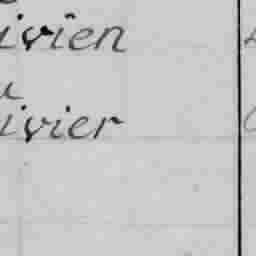 ivien
u
ivier